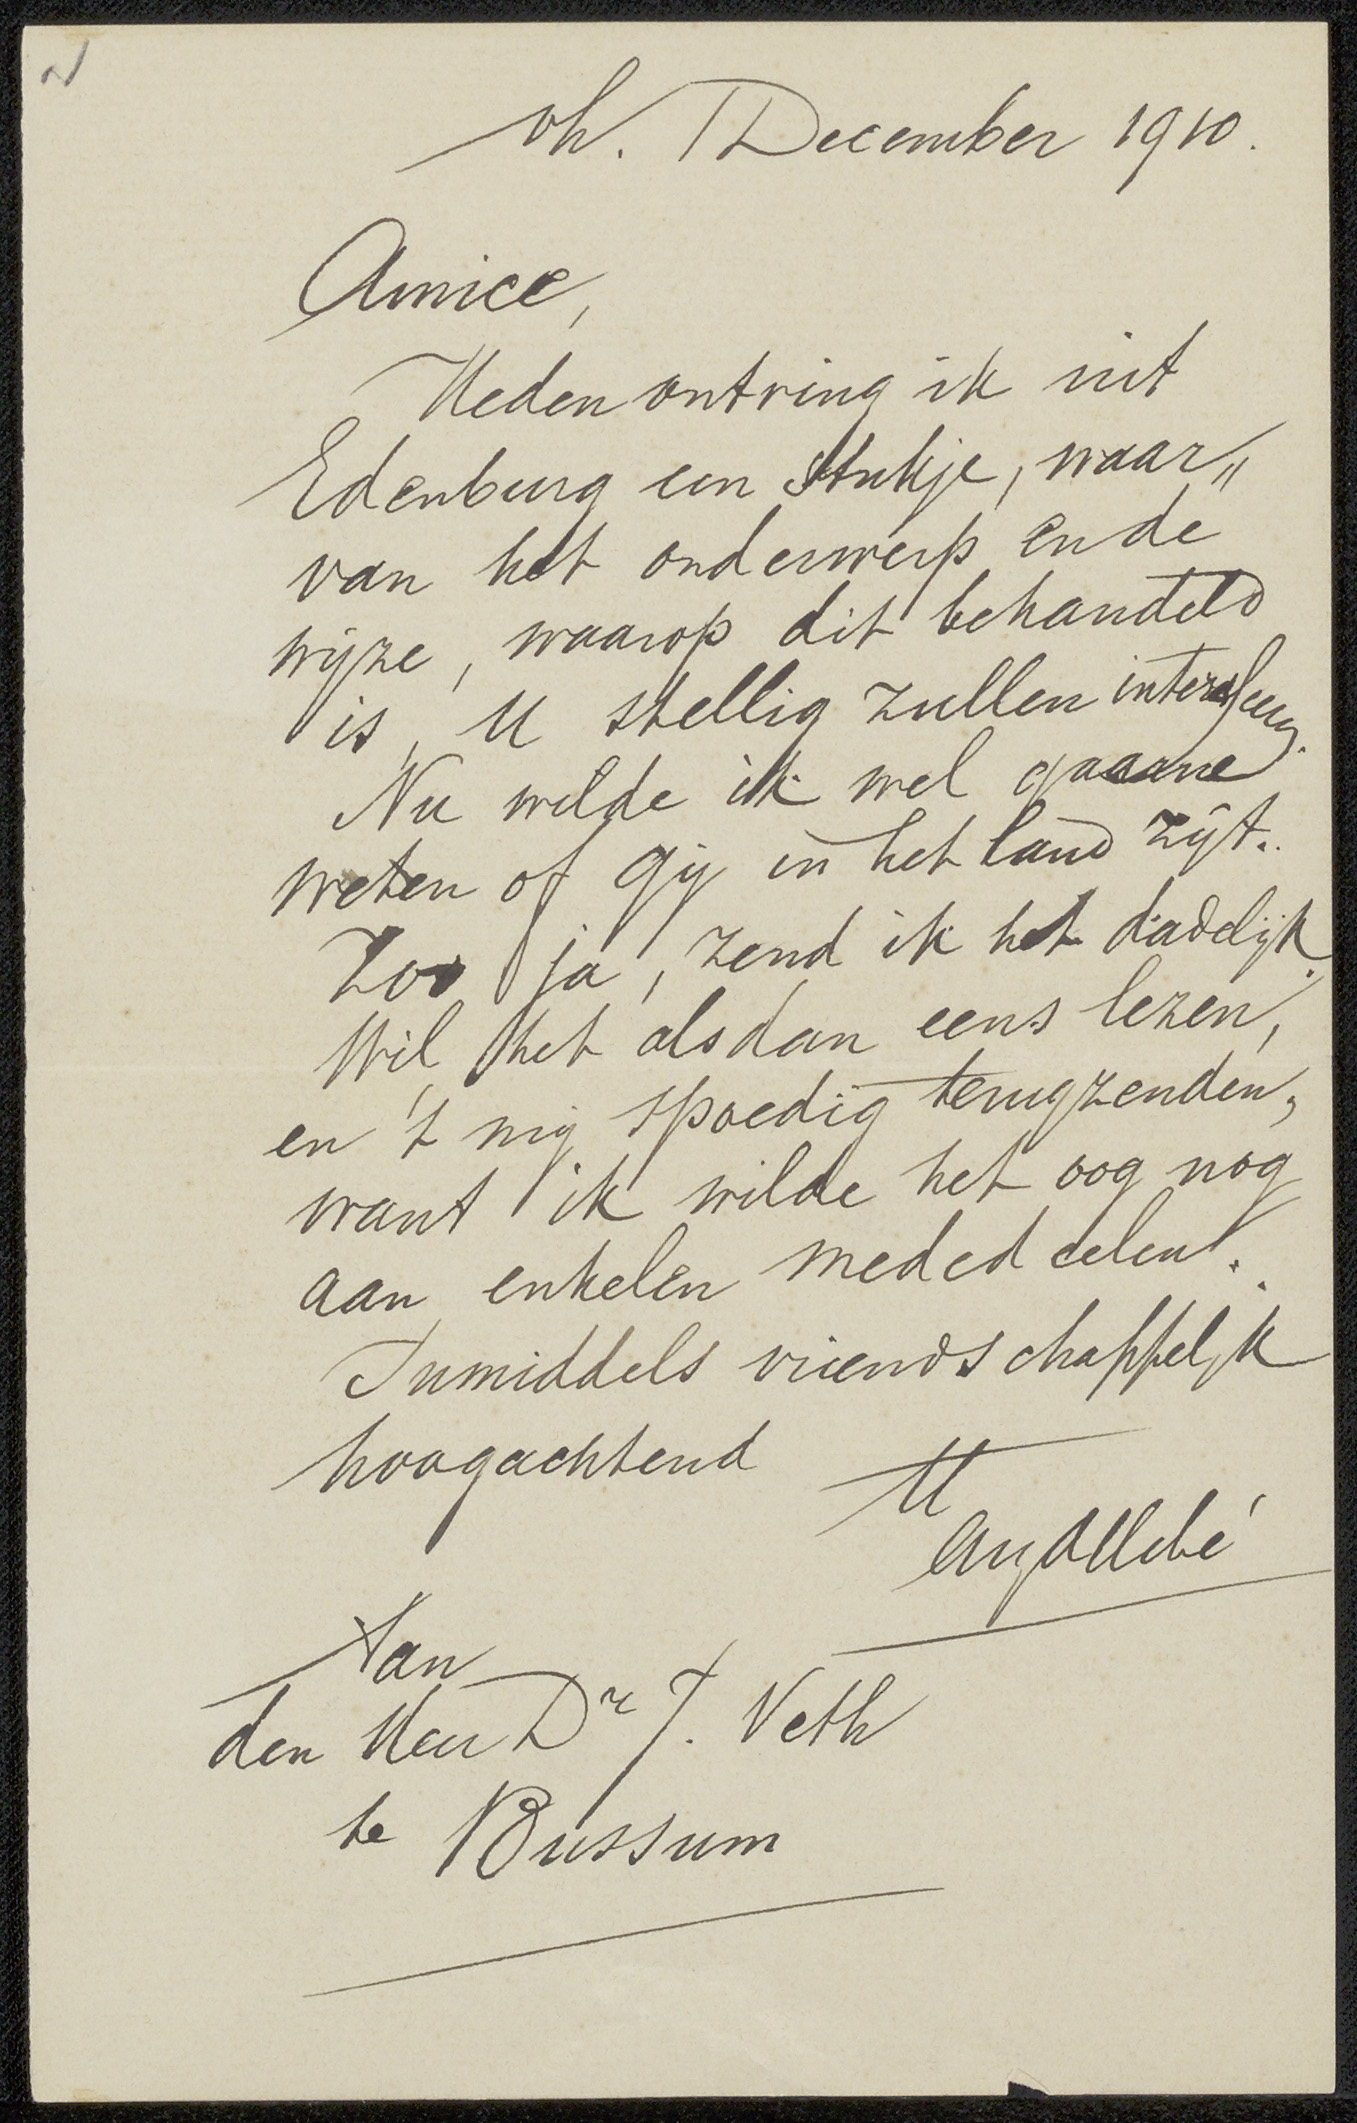 Dh. 1 December 1910.
Amice,
Heden ontving ik uit
Edenburg een Stukje, waar„
van het onderwerp en de
wijze, waarop dit behandeld
is, U stellig zullen interesseeren.
Nu wilde ik wel gaarne
weten of gij in het land zijt.
Zoo ja, zend ik het dadelijk.
Wil het alsdan eens lezen,
en 't mij spoedig terugzenden,
want ik wilde het oog nog
aan enkelen mededeelen.
Inmiddels vriendschappelijk
hoogachtend
tt
Aug Allebé
Aan
den Heer Dr J. Veth
te Bussum